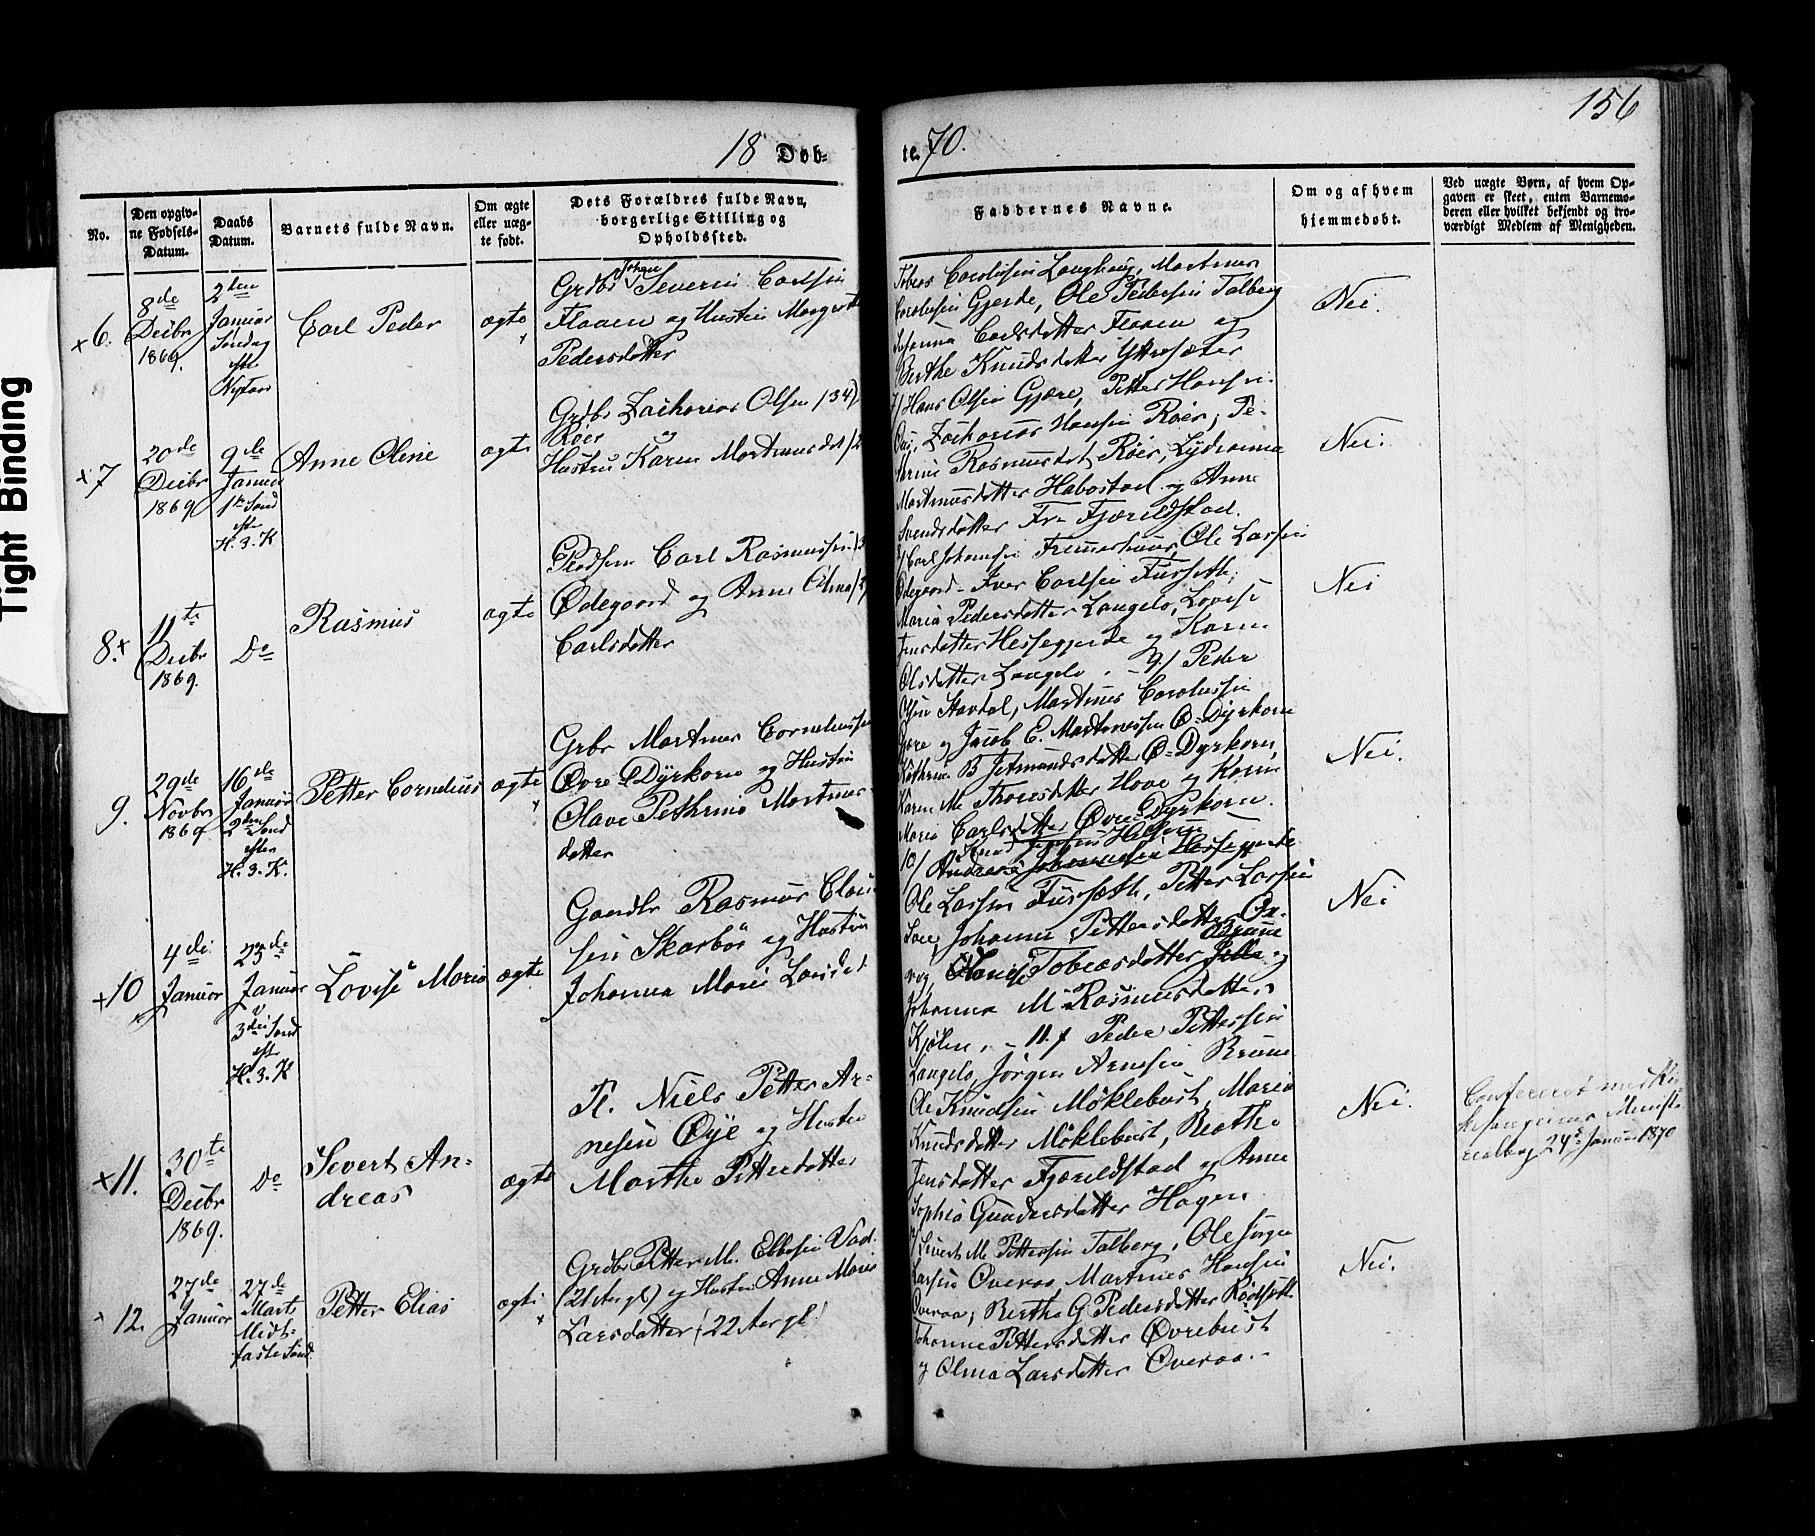 156
18 Døb-
te. 70.
No.
Den opgiv-
ne Fødsels-
Datum.
Daabs
Datum.
Barnets fulde Navn.
Om ægte
eller uæg-
te født.
Dets Forældres fulde Navn,
borgerlige Stilling og
Opholdssted.
Faddernes Navne.
Om og af hvem
hjemmedøbt.
Ved uægte Børn, af hvem Op-
gaven er skeet, enten Barnemo-
deren eller hvilket bekjendt og tro-
værdigt Medlem af Menigheden.
Tight Binding
x6.
8de
Decbr
1869.
2den
Januar
Søndag
eftr
Nytaar
Carl Peder
ægte
Grdbr Johan Severin Carlsen
Flaaen og Hustru Margrethe
Pedersdatter
Tobias Carolusen Langhaug, Martinus
Carolusen Gjerde, Ole Pedersen Talberg
Johanna Carlsdatter Flaaen og
Berthe Knudsdatter Yttresæter
Nei.
x7
20de
Decbr
1869
9de
Januar
1ste Sønd
eftr
H. 3. K
Anne Oline
ægte
Grdbr Zacharias Olsen (34)
Roer og
Hustru Karen Martinusdat
7/ Hans Olsen Gjære, Petter Hansen
Zacharias Hansen Roer, Pe-
Rasmusdat Röer, Lydianna
Martinusdatter Habostad og Anne
Svendsdatter Fjæreldstad.
Nei.
8.x
11te
Decbr
1869.
Do
Rasmus
ægte
Pladsm Carl Rasmussen
Ødegaard og Anne Olma
Carlsdatter
Carl Johansen Fremerhuus, Ole Larsen
Ødegaard - Iver Carlsen Fursæth,
Maria Pedersdatter Langelo, Lovise
Jensdatter Hessegjerde og Karen
Olsdatter Langelo. - 9/ Peder
Nei
9.
29de
Novbr
1869
16de
Januar
2den Sønd
efter
H. 3. K.
Petter Cornelius
ægte
Grbr Martinus Corneliussen
Øvre Dyrkorn og Hustru
Olave Pethrine Martinus-
datter
Olsen Stavdal, Martinus Carolussen
Gjære og Jacob E. Martinussen Ø-Dyrkorn
Kathrine B Jetmundsdatter Ø-Dyrkorn,
Karen M. Thoresdatter Hove og Karen
Maria Carlsdatter Øvre-Dyrkorn.
Nei.
x10
4de
Januar
23de
Januar
3die Sønd
eftr
H. 3. K
Lovise Marie
ægte
Gaardbr Rasmus Clau-
sen Skarbø og Hustru
Johanna Marie Larsdat
10/ Andreas Johannesen Hessegjerde
Ole Larsen Fursæth, Petter Larsen
Johanne Pettersdatter
Tobiasdatter Brune og
Johanna M. Rasmusdatter
Kjølen. - 11./ Peder Pettersen
Nei
x11.
30te
Decbr
1869.
Do
Sivert An-
dreas
ægte
Niels Petter Ar-
nesen Øye og Hustru
Marthe Pettersdatter
Langelo, Jørgen Arnesen Brune
Ole Knudsen Möklebust, Marie
Knudsdatter Möklebust, Berthe
Jensdatter Fjæreldstad og Anne
Sophia Gundersdatter Hagen
Nei.
Confereret med
Ministe-
rialbog 24de Januar 1870
x 12.
27de
Januar
27de
Marts
Midt-
faste Sønd.
Petter Elias
ægte
Grdbr Petter M. Ebbesen Vad.
(21 Aar gl) og Hustru Anne Marie
Larsdatter (22 Aar gl)
Sivert M. Pettersen Talberg, Ole Jørgen
Larsen Overaa, Martinus Hansen
Overaa, Berthe G. Pedersdatter Rödset
Johanne Pettersdatter Øvrebust
og Olma Larsdatter Overaa.
Nei.